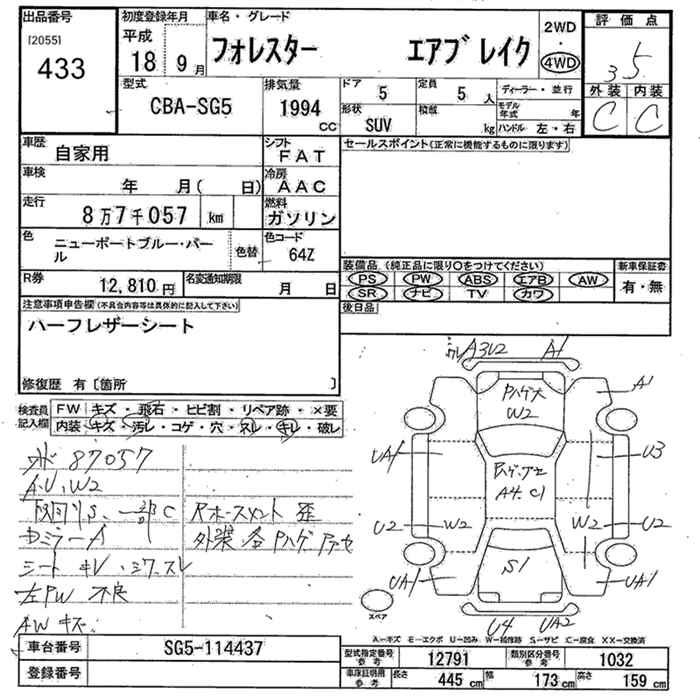 出品番号
[2055]
433
初度登録年月
平成
18 9 月
車名・グレード
フォレスター エアブレイク
2WD
・
4WD
評価点
3.5
外装 内装
C C
型式
CBA-SG5
排気量
1994
cc
ドア
5
形状
SUV
定員
5 人
積載
kg
ディーラー・並行
モデル
年式 年
ハンドル 左・右
車歴
自家用
シフト
FAT
車検
年 月( 日)
冷房
AAC
走行
8万7千057 km
燃料
ガソリン
色
ニューポートブルー・パール
色替
色コード
64Z
R券
12,810円
名変通知期限
月 日
セールスポイント(正常に機能するものに限ります)
装備品 (純正品に限り○をつけてください)
PS PW ABS エアB AW
SR ナビ TV カワ
新車保証書
有・無
後日品
注意事項申告欄(不具合内容等は具体的に記入して下さい)
ハーフレザーシート
修復歴 有〔箇所 〕
検査員
記入欄
FW キズ・飛石・ヒビ割・リペア跡・×要
内装 キズ・汚レ・コゲ・穴・スレ・キレ・破レ
87057
A.U.W2
S、一部C
ミラーA
シート キレ・シワ・スレ
左PW 不良
AWキズ
A3U2 A1
Pハゲ大
W2
A1
UA1 U3
A4 C1
U2 W2 W2 U2
S1
UA1 UA1
U4 UA2
スペア
A―キズ E―エクボ U―凹み W―補修跡 S―サビ C―腐食 XX―交換済
車台番号
SG5-114437
登録番号
型式指定番号
参考
12791
類別区分番号
参考
1032
車庫証明用
参考
長さ
445 cm
幅
173 cm
高さ
159 cm